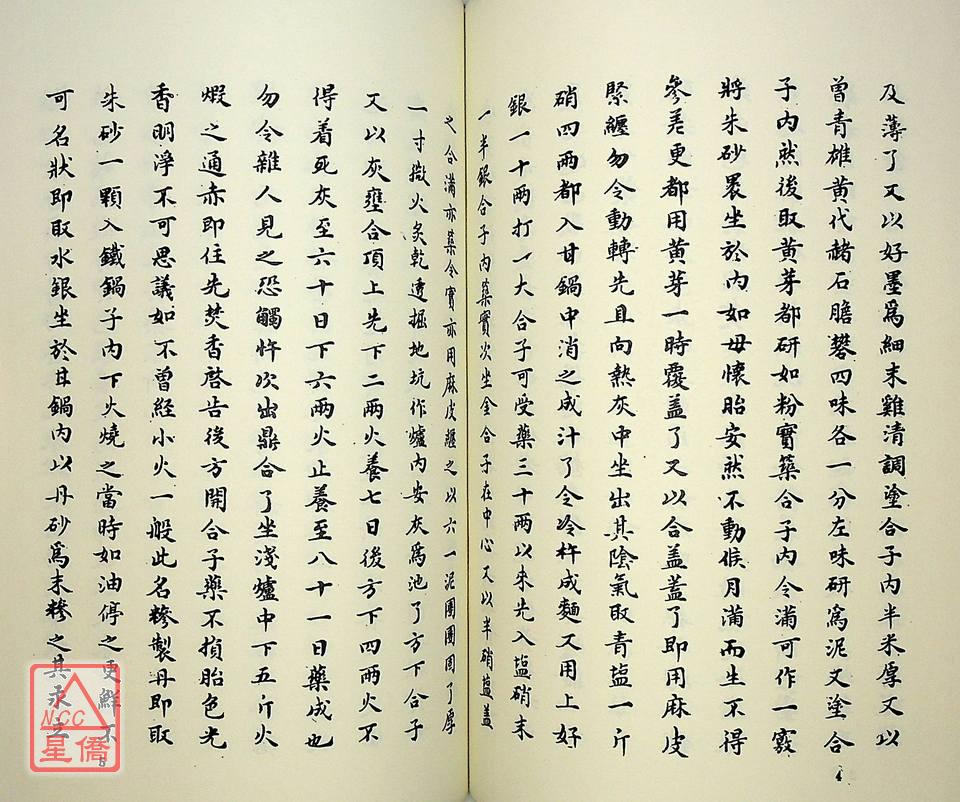 及薄了又以好墨爲細末雞清調塗合子內半米厚又以
曾青雄黃代赭石膽礬四味各一分左味研爲泥又塗合
子內然後取黃芽都研如粉實築合子內令滿可作一竅
將朱砂褁坐於內如母懷胎安然不動候月滿而生不得
參差更都用黃芽一時覆盖了又以合盖盖了即用麻皮
緊纏勿令動轉先且向熱灰中坐出其陰氣取青塩一斤
硝四兩都入甘鍋中消之成汁了令冷杵成麵又用上好
銀一十兩打一大合子可受藥三十兩以來先入塩硝末
一半銀合子內築實次坐金合子在中心又以半硝塩盖
4
之合滿亦築令實亦用麻皮纏之以六一泥團團固了厚
一寸撒火炙乾透掘地坑作爐內安灰爲池了方下合子
又以灰壅合頂上先下二兩火養七日後方下四兩火不
得着死灰至六十日下六兩火止養至八十一日藥成也
勿令雜人見之恐觸忤次出鼎合了坐淺爐中下五斤火
煅之通赤即住先焚香啓告後方開合子藥不損胎色光
香明淨不可思議如不曾經小火一般此名糝製丹即取
朱砂一顆入鐵鍋子內下火燒之當時如油停之更鮮不
可名狀即取水銀坐於甘鍋內以丹砂爲末糝之其汞立
5
NCC
星僑